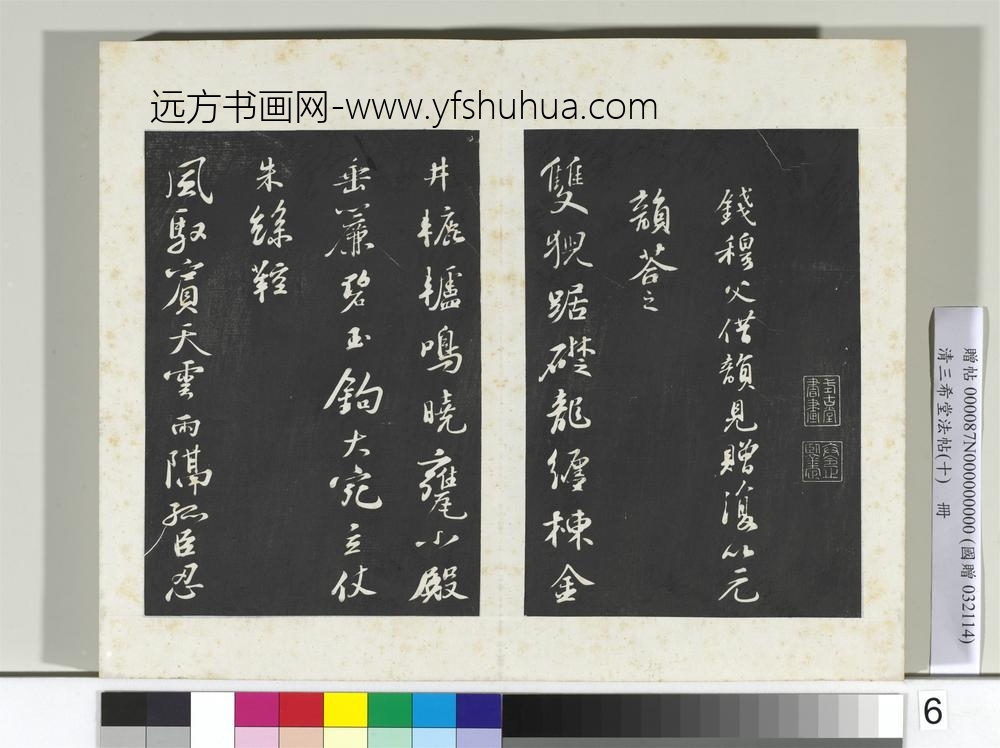 远方书画网-www.yfshuhua.com
錢穆父借韻見贈復以元
韻荅之
雙猊踞礎龍纏棟金
井轆轤鳴曉甕小殿
垂簾碧玉鈎大宛立仗
朱絲鞚
風馭賓天雲雨隔孤臣忍
贈帖 000087N000000000 (國贈 032114)
清三希堂法帖(十) 冊
6